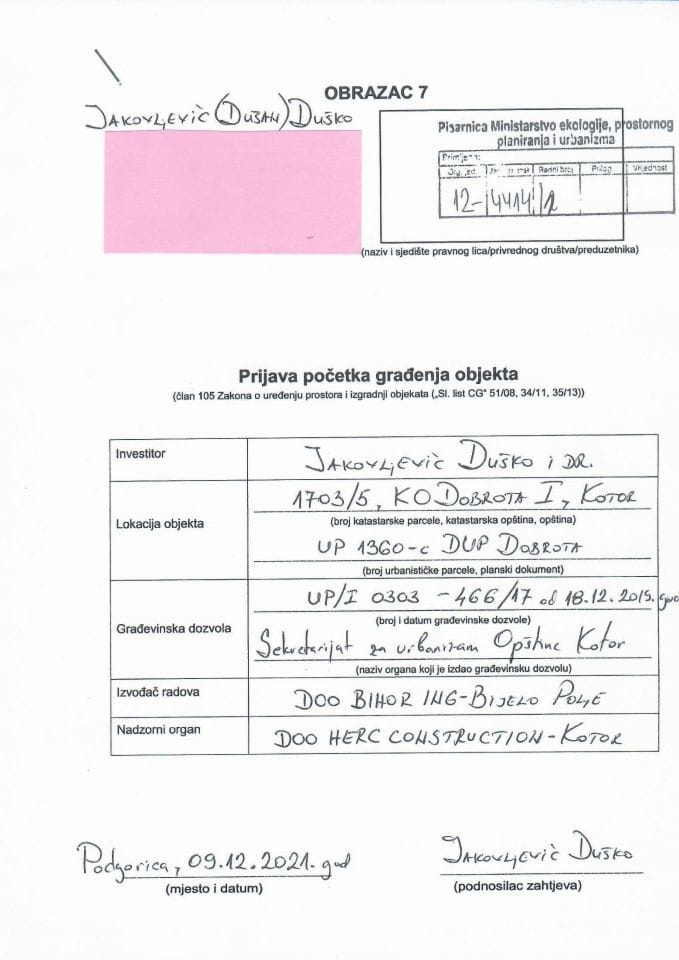 OBRAZAC 7
JAKOVLJEVIĆ (DUŠAN) DUŠKO
Pisarnica Ministarstvo ekologije, prostornog
planiranja i urbanizma
Primljeno:
Org. jed. Redni broj Prilog Vrijednost
12- 4414/1
(naziv i sjedište pravnog lica/privrednog društva/preduzetnika)
Prijava početka građenja objekta
(član 105 Zakona o uređenju prostora i izgradnji objekata („Sl. list CG" 51/08, 34/11, 35/13))
Investitor
JAKOVLJEVIĆ DUŠKO I DR.
Lokacija objekta
1703/5, KO DOBROTA I, KOTOR
(broj katastarske parcele, katastarska opština, opština)
UP 1360-c DUP DOBROTA
(broj urbanističke parcele, planski dokument)
Građevinska dozvola
UP/I 0303 -466/17 od 18.12.2015.
(broj i datum građevinske dozvole)
Sekretarijat za urbanizam Opštine Kotor
(naziv organa koji je izdao građevinsku dozvolu)
Izvođač radova
DOO BIHOR ING-BIJELO POLJE
Nadzorni organ
DOO HERC CONSTRUCTION-KOTOR
Podgorica, 09.12.2021. god
(mjesto i datum)
JAKOVLJEVIĆ DUŠKO
(podnosilac zahtjeva)